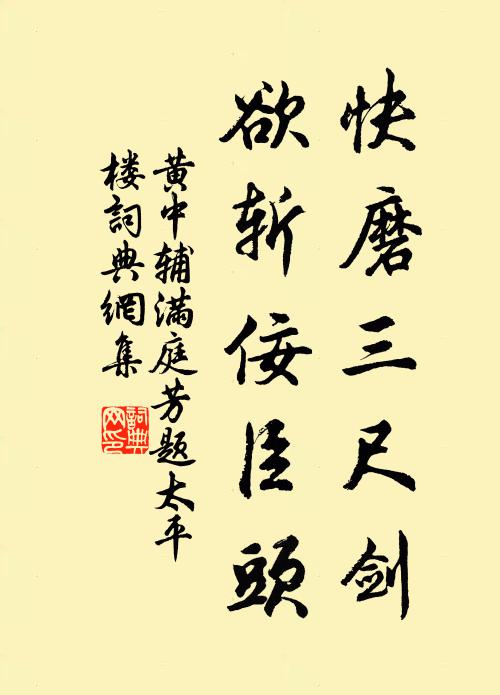 快磨三尺剑
欲斩佞臣頭
黄中辅满庭芳题太平
楼詞典網集
詞典网印